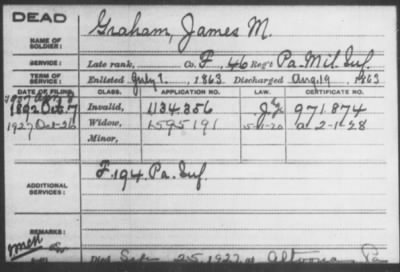 DEAD
NAME OF SOLDIER: Graham, James M.
SERVICE: Late rank, Co. F, 46 Reg't Pa. Mil. Inf.
TERM OF SERVICE: Enlisted July 1, 1863 Discharged Aug. 19, 1863
DATE OF FILING. CLASS. APPLICATION NO. LAW. CERTIFICATE NO.
1892 Oct. 7 Invalid, 1134.356 971.874
1927 Oct 26 Widow, 1595191 5-1-20 a 2-1-28
Minor,
ADDITIONAL SERVICES: F. 194. Pa. Inf.
REMARKS:
Died Sep 25, 1927 at Altoona Pa